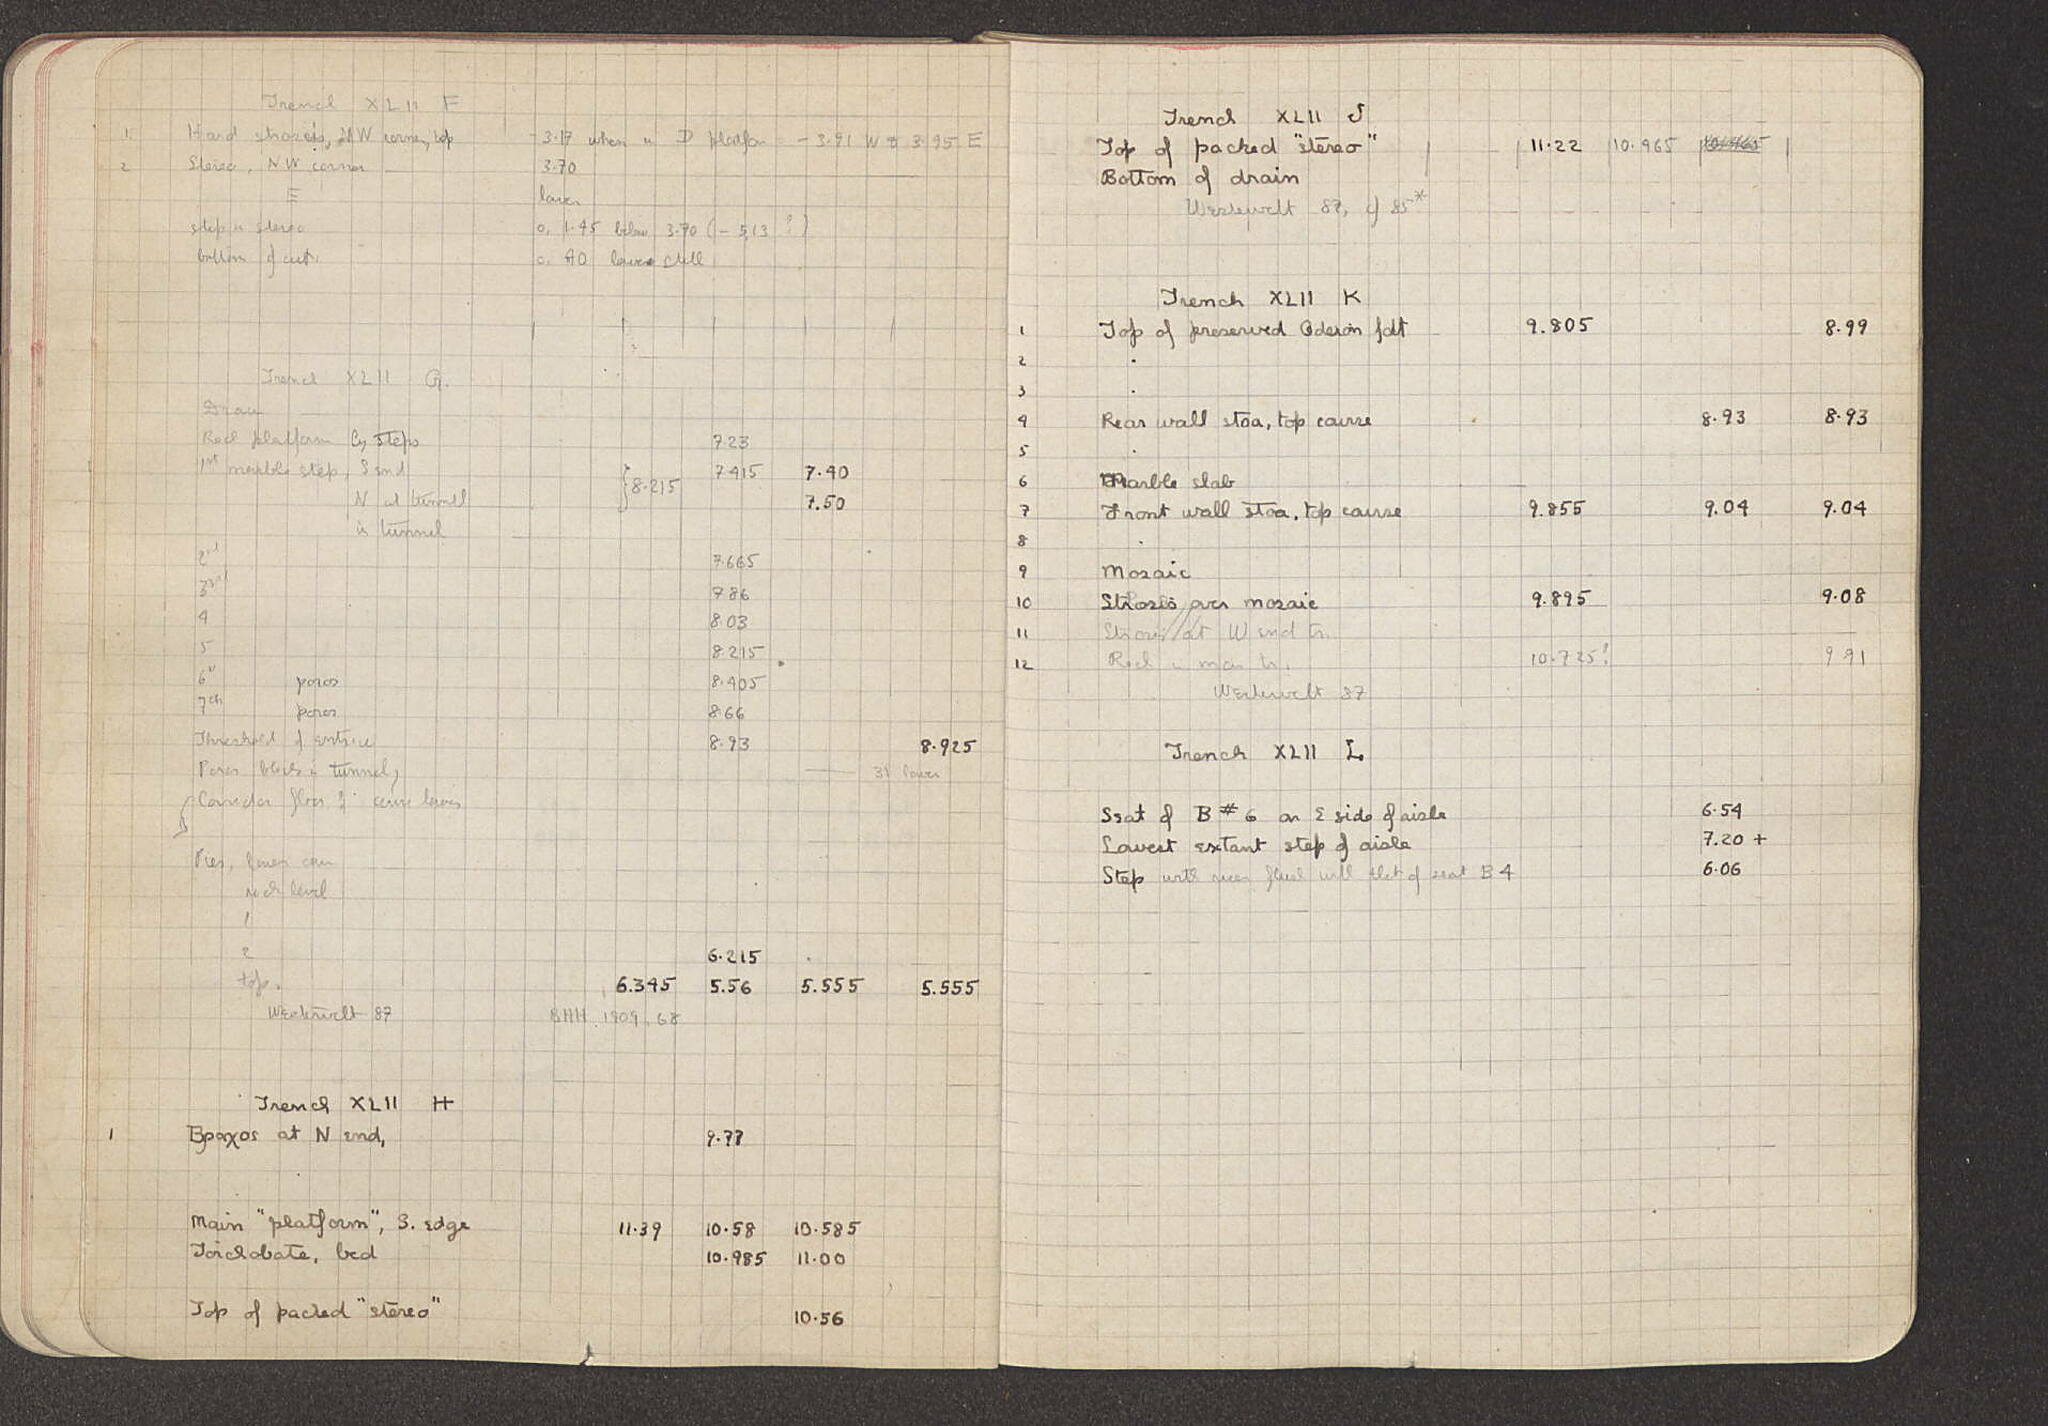 Trench XLII F
1 Hard strosis, NW corner, top - 3.17 when in D platform - 3.91 W & 3.95 E
2 Stereo, NW corner 3.70
E lower
step in stereo c. 1.45 below 3.70 (- 5.13 ?)
bottom of cut. c. .40 lower still
Trench XLII G.
Drain
Rock platform by steps 7.23
1st marble step, S end 8.215 7.415 7.40
N at tunnel 7.50
in tunnel
2nd 7.665
3rd 7.86
4 8.03
5 8.215
6th poros 8.405
7th poros 8.66
Threshold of entrance 8.93 8.925
Poros block in tunnel, 31 lower
Corridor floor course lower
Pier, lower
rock level
1
2 6.215
top. 6.345 5.56 5.555 5.555
Weekwelt 87 BHH 1909, 68
Trench XLII H
1 Βραχος at N end, 9.77
Main "platform", S. edge 11.39 10.58 10.585
Toichobate, bed 10.985 11.00
Top of packed "stereo" 10.56
Trench XLII J
Top of packed "stereo" 11.22 10.965
Bottom of drain
87, cf 85*
Trench XLII K
1 Top of preserved Oderon fdt 9.805 8.99
2 .
3 .
4 Rear wall stoa, top course 8.93 8.93
5 .
6 Marble slab
7 Front wall stoa, top course 9.855 9.04 9.04
8 .
9 Mosaic
10 Strosis over mosaic 9.895 9.08
11 Strosis at W end tr.
12 Rock in main tr. 10.725? 9.91
87
Trench XLII L
Seat of B #6 on E side of aisle 6.54
Lowest extant step of aisle 7.20 +
Step with riser flush with that of seat B 4 6.06